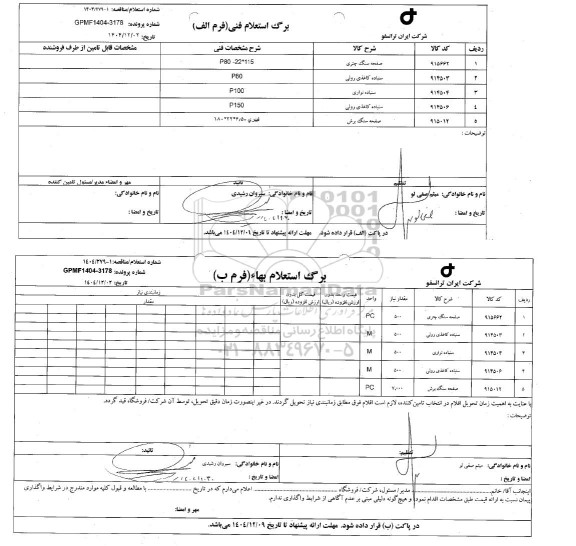 شماره استعلام/مناقصه: ۱-۱۴۰۴/۲۷۹
برگ استعلام فنی(فرم الف)
شماره پرونده: GPMF1404-3178
تاریخ: ۱۴۰۴/۱۲/۰۲
شرکت ایران ترانسفو
ردیف کد کالا شرح کالا شرح مشخصات فنی مشخصات قابل تامین از طرف فروشنده
۱ ۹۱۵۶۶۲ صفحه سنگ چتری P80 -22*115
۲ ۹۱۴۵۰۳ سنباده کاغذی رولی P60
۳ ۹۱۴۵۰۴ سنباده نواری P100
۴ ۹۱۴۵۰۶ سنباده کاغذی رولی P150
۵ ۹۱۵۰۱۲ صفحه سنگ برش
توضیحات:
تنظیم تائید مهر و امضاء مدیر/مسئول تامین کننده
نام و نام خانوادگی: میثم صفی لو نام و نام خانوادگی: سیروان رشیدی نام و نام خانوادگی:
تاریخ و امضا: تاریخ و امضا: تاریخ و امضا:
در پاکت (الف) قرار داده شود. مهلت ارائه پیشنهاد تا تاریخ ۱۴۰۴/۱۲/۰۹ می‌باشد.
شماره استعلام/مناقصه: ۱-۱۴۰۴/۲۷۹
برگ استعلام بهاء(فرم ب)
شماره پرونده: GPMF1404-3178
تاریخ: ۱۴۰۴/۱۲/۰۲
شرکت ایران ترانسفو
ردیف کد کالا شرح کالا مقدار نیاز واحد قیمت واحد بدون ارزش افزوده (ریال) قیمت کل بدون ارزش افزوده (ریال) زمانبندی نیاز
مقدار
۱ ۹۱۵۶۶۲ صفحه سنگ چتری ۵۰۰ PC
۲ ۹۱۴۵۰۳ سنباده کاغذی رولی ۵۰۰ M
۳ ۹۱۴۵۰۴ سنباده نواری ۵۰۰ M
۴ ۹۱۴۵۰۶ سنباده کاغذی رولی ۵۰۰ M
۵ ۹۱۵۰۱۲ صفحه سنگ برش ۲،۰۰۰ PC
با عنایت به اهمیت زمان تحویل اقلام در انتخاب تامین‌کننده، لازم است اقلام فوق مطابق زمانبندی نیاز تحویل گردند. در غیر اینصورت زمان دقیق تحویل، توسط آن شرکت/فروشگاه قید گردد.
توضیحات:
تنظیم: تائید:
نام و نام خانوادگی: میثم صفی لو نام و نام خانوادگی: سیروان رشیدی
تاریخ و امضا: تاریخ و امضا:
اینجانب آقا/خانم مدیر/مسئول، شرکت/فروشگاه اعلام می‌دارم که در تاریخ با مطالعه و قبول کلیه موارد مندرج در شرایط واگذاری
پیمان نسبت به ارائه قیمت طبق مشخصات اقدام نموده و هیچگونه دلیلی مبنی بر عدم آگاهی از شرایط واگذاری ندارم.
مهر و امضا:
در پاکت (ب) قرار داده شود. مهلت ارائه پیشنهاد تا تاریخ ۱۴۰۴/۱۲/۰۹ می‌باشد.
ParsNamadData
پایگاه اطلاع رسانی مناقصه و مزایده
۰۲۱-۸۸۳۴۹۶۷۰-۵